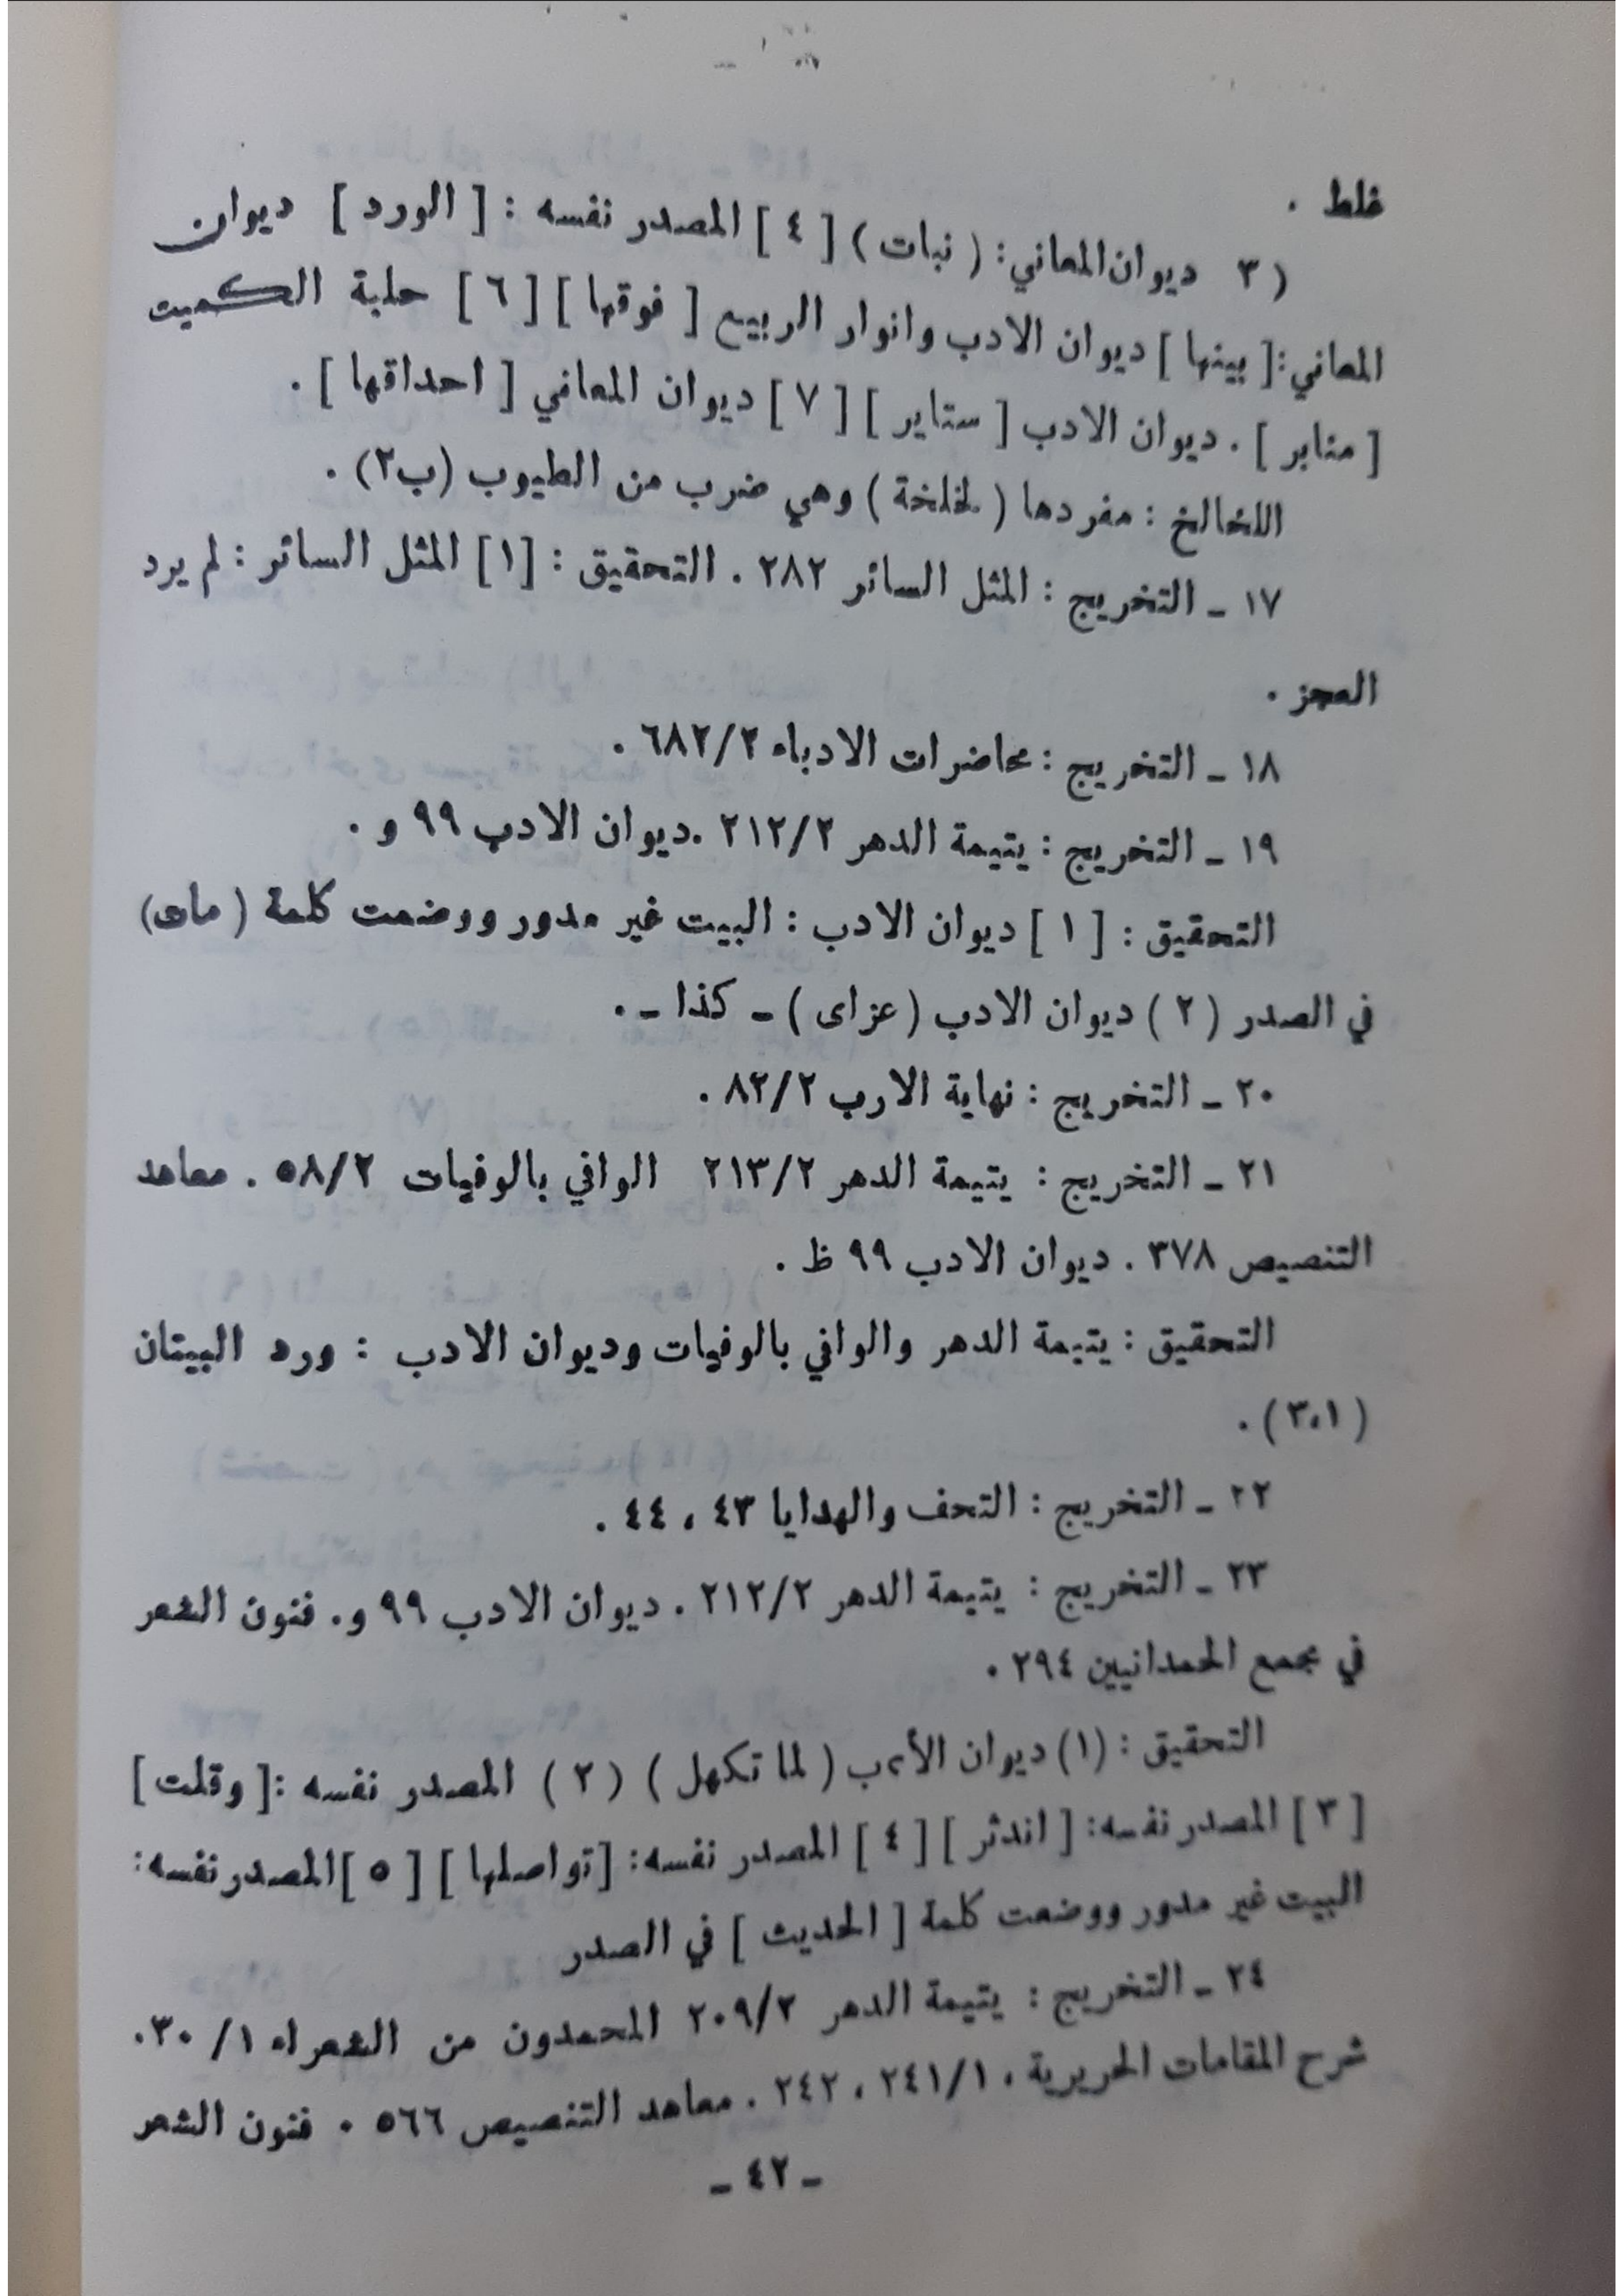 غلط .
( ٣ ديوان المعاني: ( نبات ) [ ٤ ] المصدر نفسه : [ الورد ] ديوان
المعاني: [ بينها ] ديوان الادب وانوار الربيع [ فوقها ] [ ٦ ] حلبة الكميت
[ منابر ] . ديوان الادب [ ستاير ] [ ٧ ] ديوان المعاني [ احداقها ] .
اللخالخ : مفردها ( لخلخة ) وهي ضرب من الطيوب (ب٢) .
١٧ ـ التخريج : المثل السائر ٢٨٢ . التحقيق : [١] المثل السائر : لم يرد
العجز .
١٨ ـ التخريج : محاضرات الادباء ٦٨٢/٢ .
١٩ ـ التخريج : يتيمة الدهر ٢١٢/٢ .ديوان الادب ٩٩ و .
التحقيق : [ ١ ] ديوان الادب : البيت غير مدور ووضعت كلمة ( ماى)
في الصدر ( ٢ ) ديوان الادب ( عزاى ) ـ كذا ـ .
٢٠ ـ التخريج : نهاية الارب ٨٢/٢ .
٢١ ـ التخريج : يتيمة الدهر ٢١٣/٢ الوافي بالوفيات ٥٨/٢ . معاهد
التنصيص ٣٧٨ . ديوان الادب ٩٩ ظ .
التحقيق : يتيمة الدهر والوافي بالوفيات وديوان الادب : ورد البيتان
( ٣،١ ) .
٢٢ ـ التخريج : التحف والهدايا ٤٣ ، ٤٤ .
٢٣ ـ التخريج : يتيمة الدهر ٢١٢/٢ . ديوان الادب ٩٩ و. فنون الشعر
في مجمع الحمدانيين ٢٩٤ .
التحقيق : (١) ديوان الأدب ( لما تكهل ) ( ٢ ) المصدر نفسه :[ وقلت ]
[ ٣ ] المصدر نفسه: [ اندثر ] [ ٤ ] المصدر نفسه: [تواصلها ] [ ٥ ] المصدر نفسه:
البيت غير مدور ووضعت كلمة [ الحديث ] في الصدر
٢٤ ـ التخريج : يتيمة الدهر ٢٠٩/٢ المحمدون من الشعراء ١/ ٣٠.
شرح المقامات الحريرية ، ٢٤١/١ ، ٢٤٢ . معاهد التنصيص ٥٦٦ . فنون الشعر
ـ ٤٢ ـ